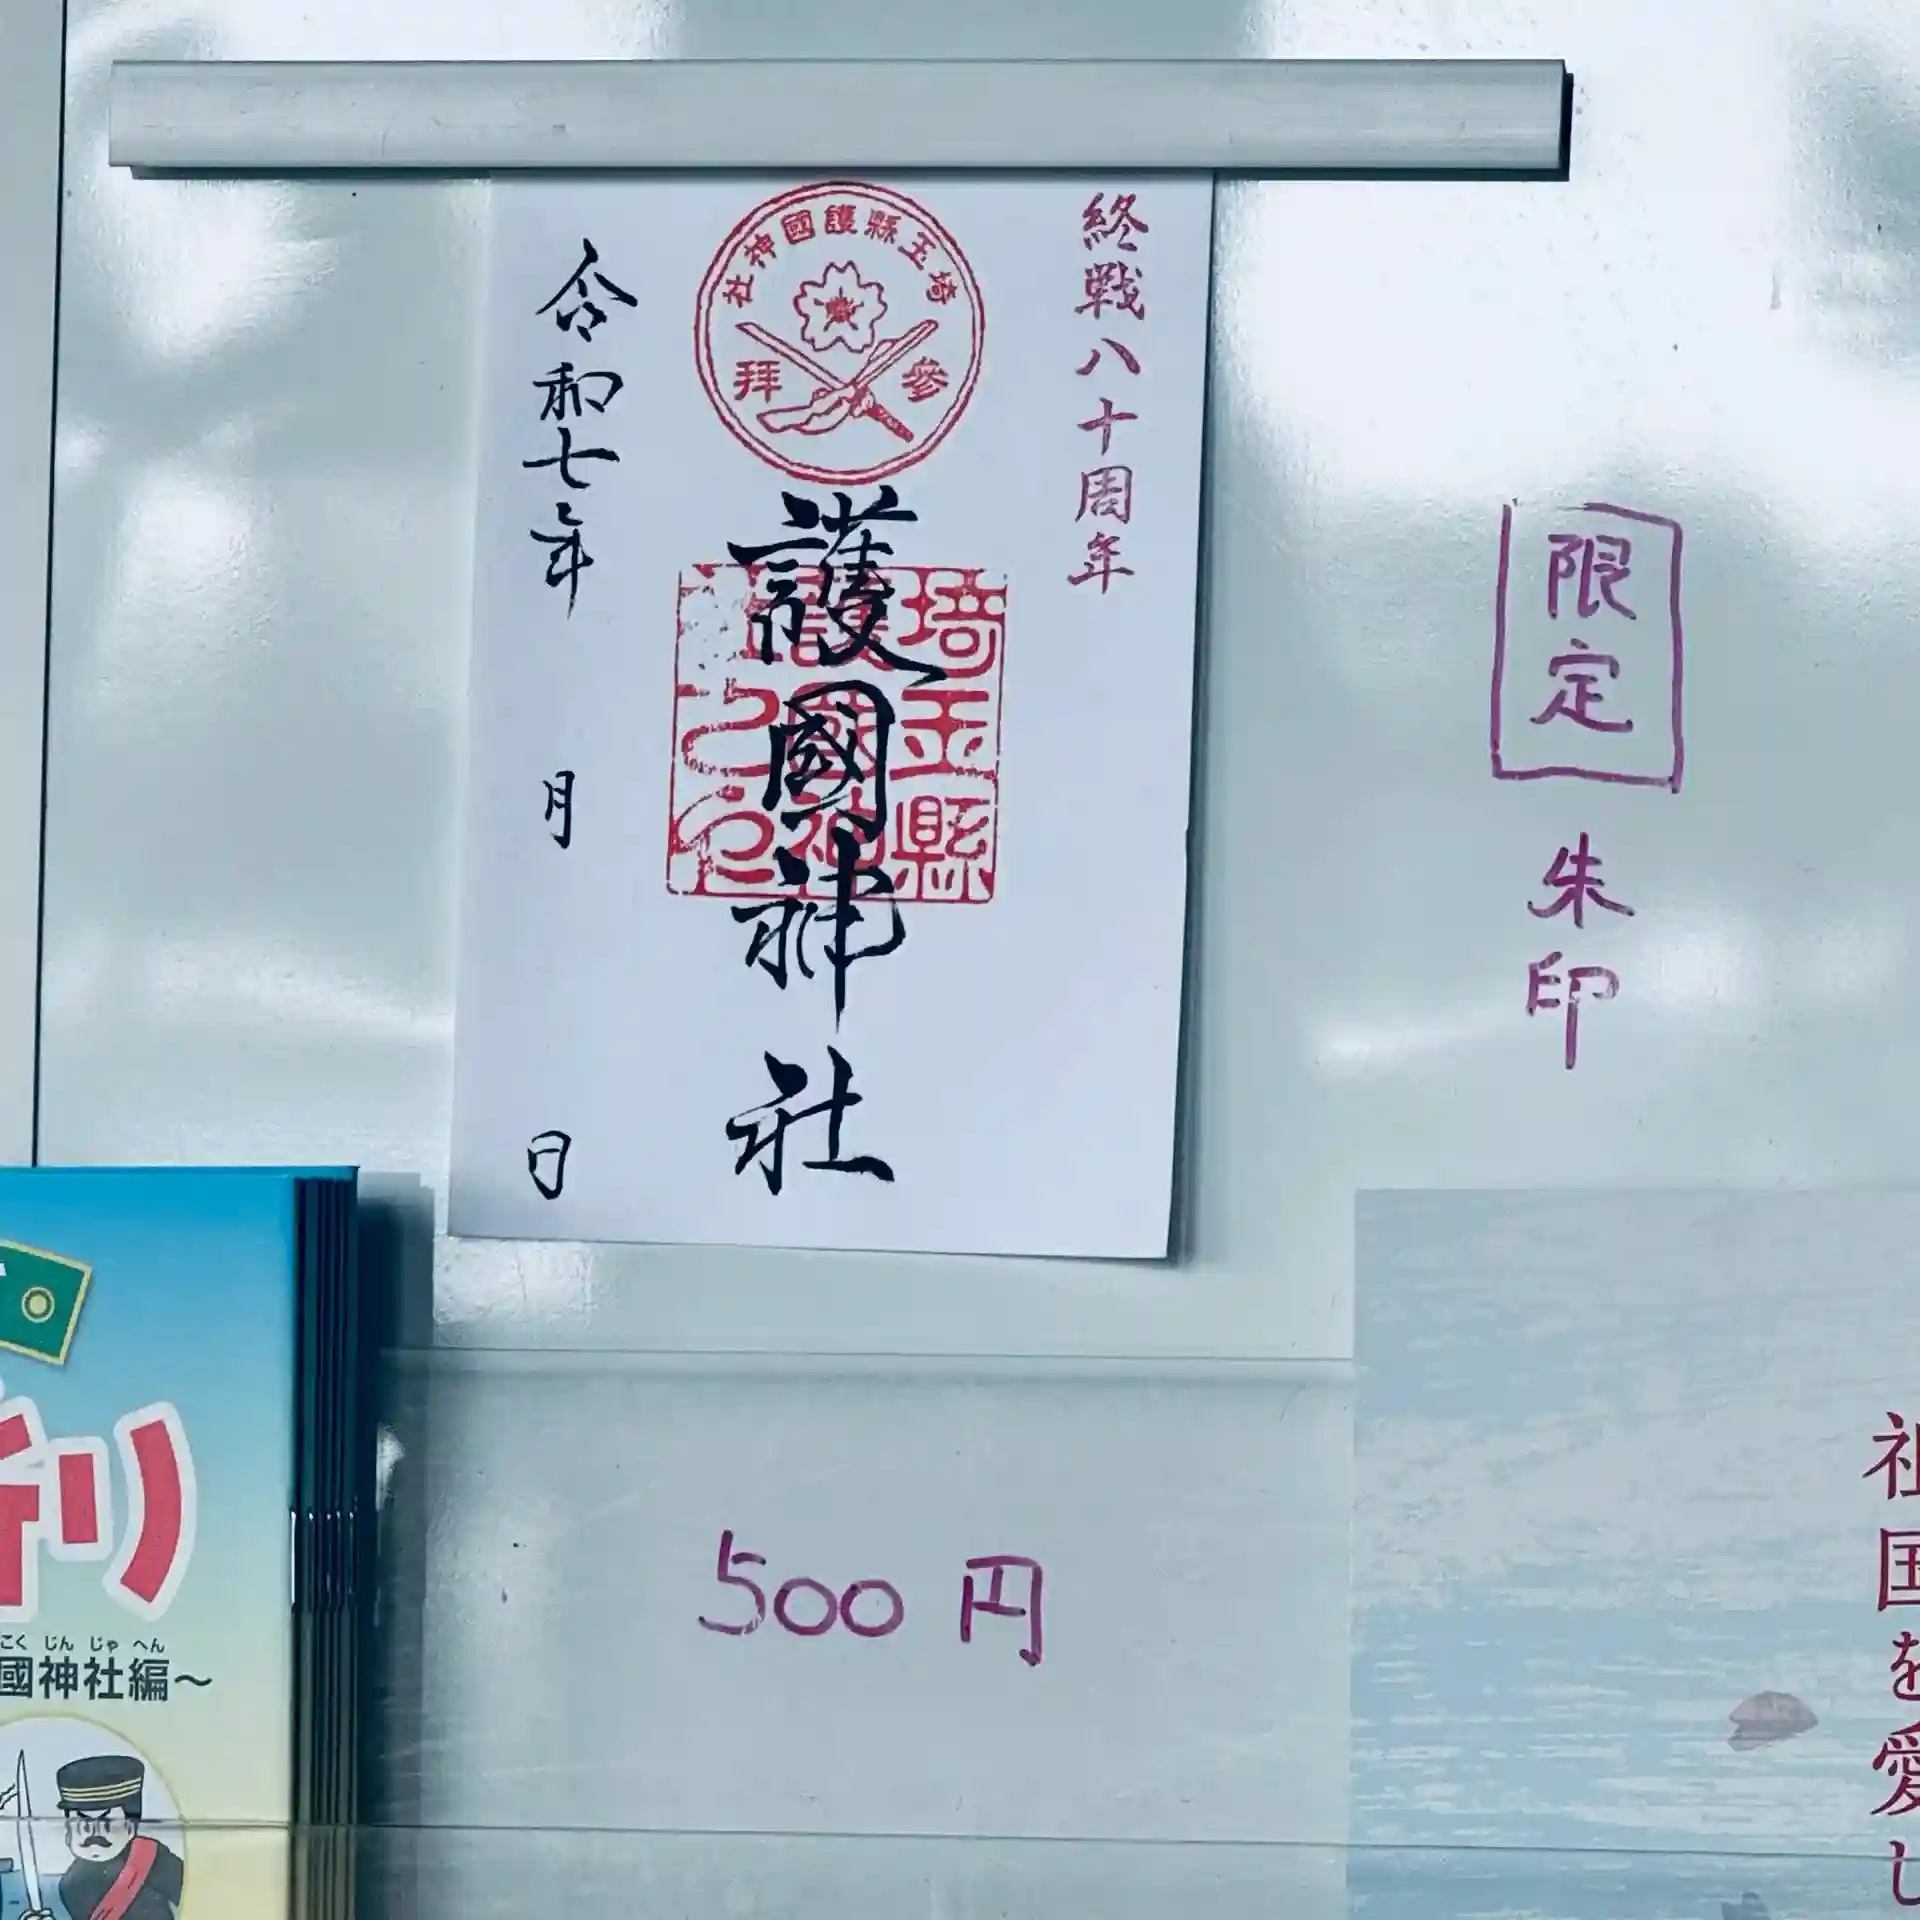 終戦八十周年
埼玉縣護國神社
參拜
護國神社
埼玉縣
護國神
令和七年 月 日
限定
朱印
500円
こくじんじゃへん
國神社編～
祖国を愛し